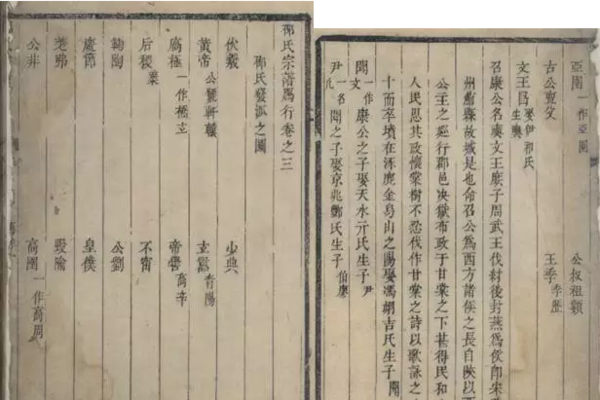 邵氏宗譜焉行卷之三
邵氏發派之圖
伏羲 少典
黃帝 公孫軒轅 玄囂 青陽
蟜極 一作橋立 帝嚳 高辛
后稷 棄 不窋
鞠陶 公劉
慶節 皇僕
差弗 毀隃
公非 高圉 一作高周
亞圉一作亞圉 公叔祖類
古公亶父 王季 季歷
文王昌 娶伊和氏生奭
召康公名奭文王庶子周武王伐紂後封燕為侯即宋
州薊縣故城是也命召公為西方諸侯之長自陝以西
公主之經行郡邑决獄布政于甘棠之下甚得民和
人民思其政懷棠樹不忍伐作甘棠之詩以歌詠之
十而卒墳在涿鹿金烏山之陽娶馮翊吉氏生子閎
閎一作文康公之子娶天水亓氏生子尹
尹一名允閎之子娶京兆鄭氏生子伯廖